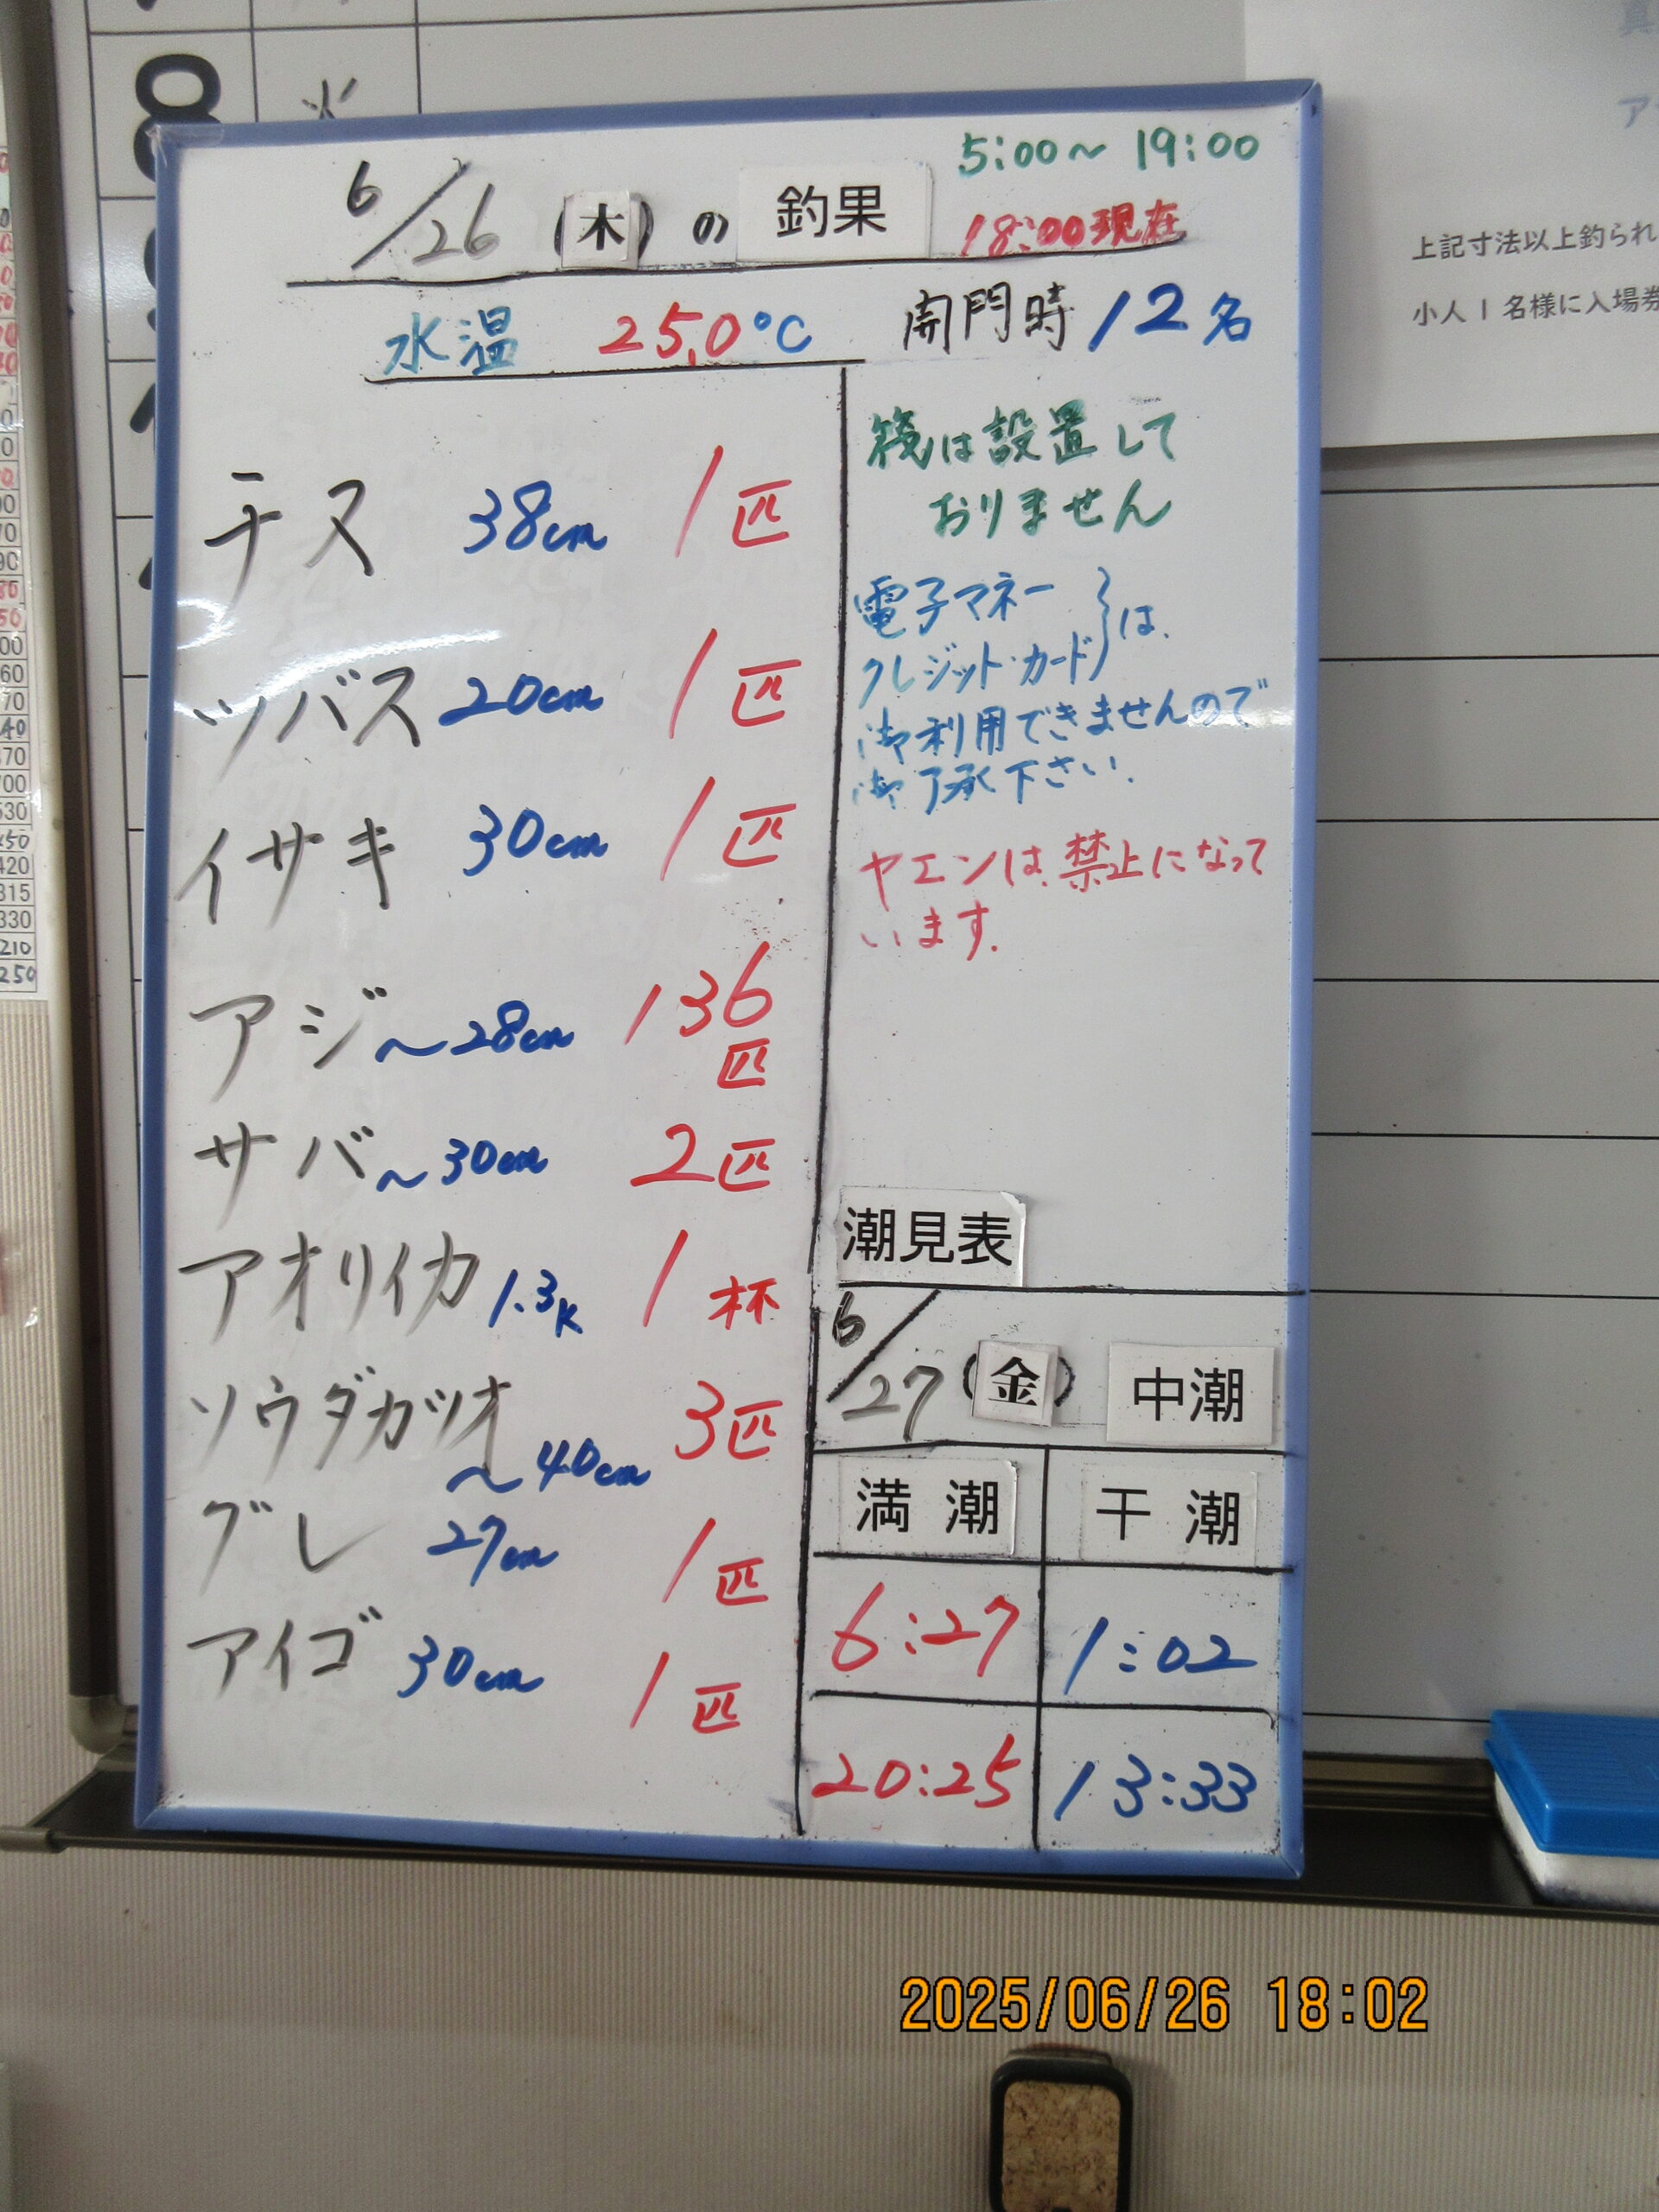 8 火
5:00～19:00
6/26 (木) の 釣果 18:00現在
水温 25.0℃ 開門時 12名
チヌ 38cm 1匹
ツバス 20cm 1匹
イサキ 30cm 1匹
アジ ～28cm 136匹
サバ ～30cm 2匹
アオリイカ 1.3K 1杯
ソウダガツオ ～40cm 3匹
グレ 27cm 1匹
アイゴ 30cm 1匹
筏は設置して
おりません
電子マネー
クレジット・カード}は、
御利用できませんので
御了承下さい.
ヤエンは、禁止になって
います.
潮見表
6/27 (金) 中潮
満潮 干潮
6:27 1:02
20:25 13:33
上記寸法以上釣られ
小人1名様に入場券
2025/06/26 18:02